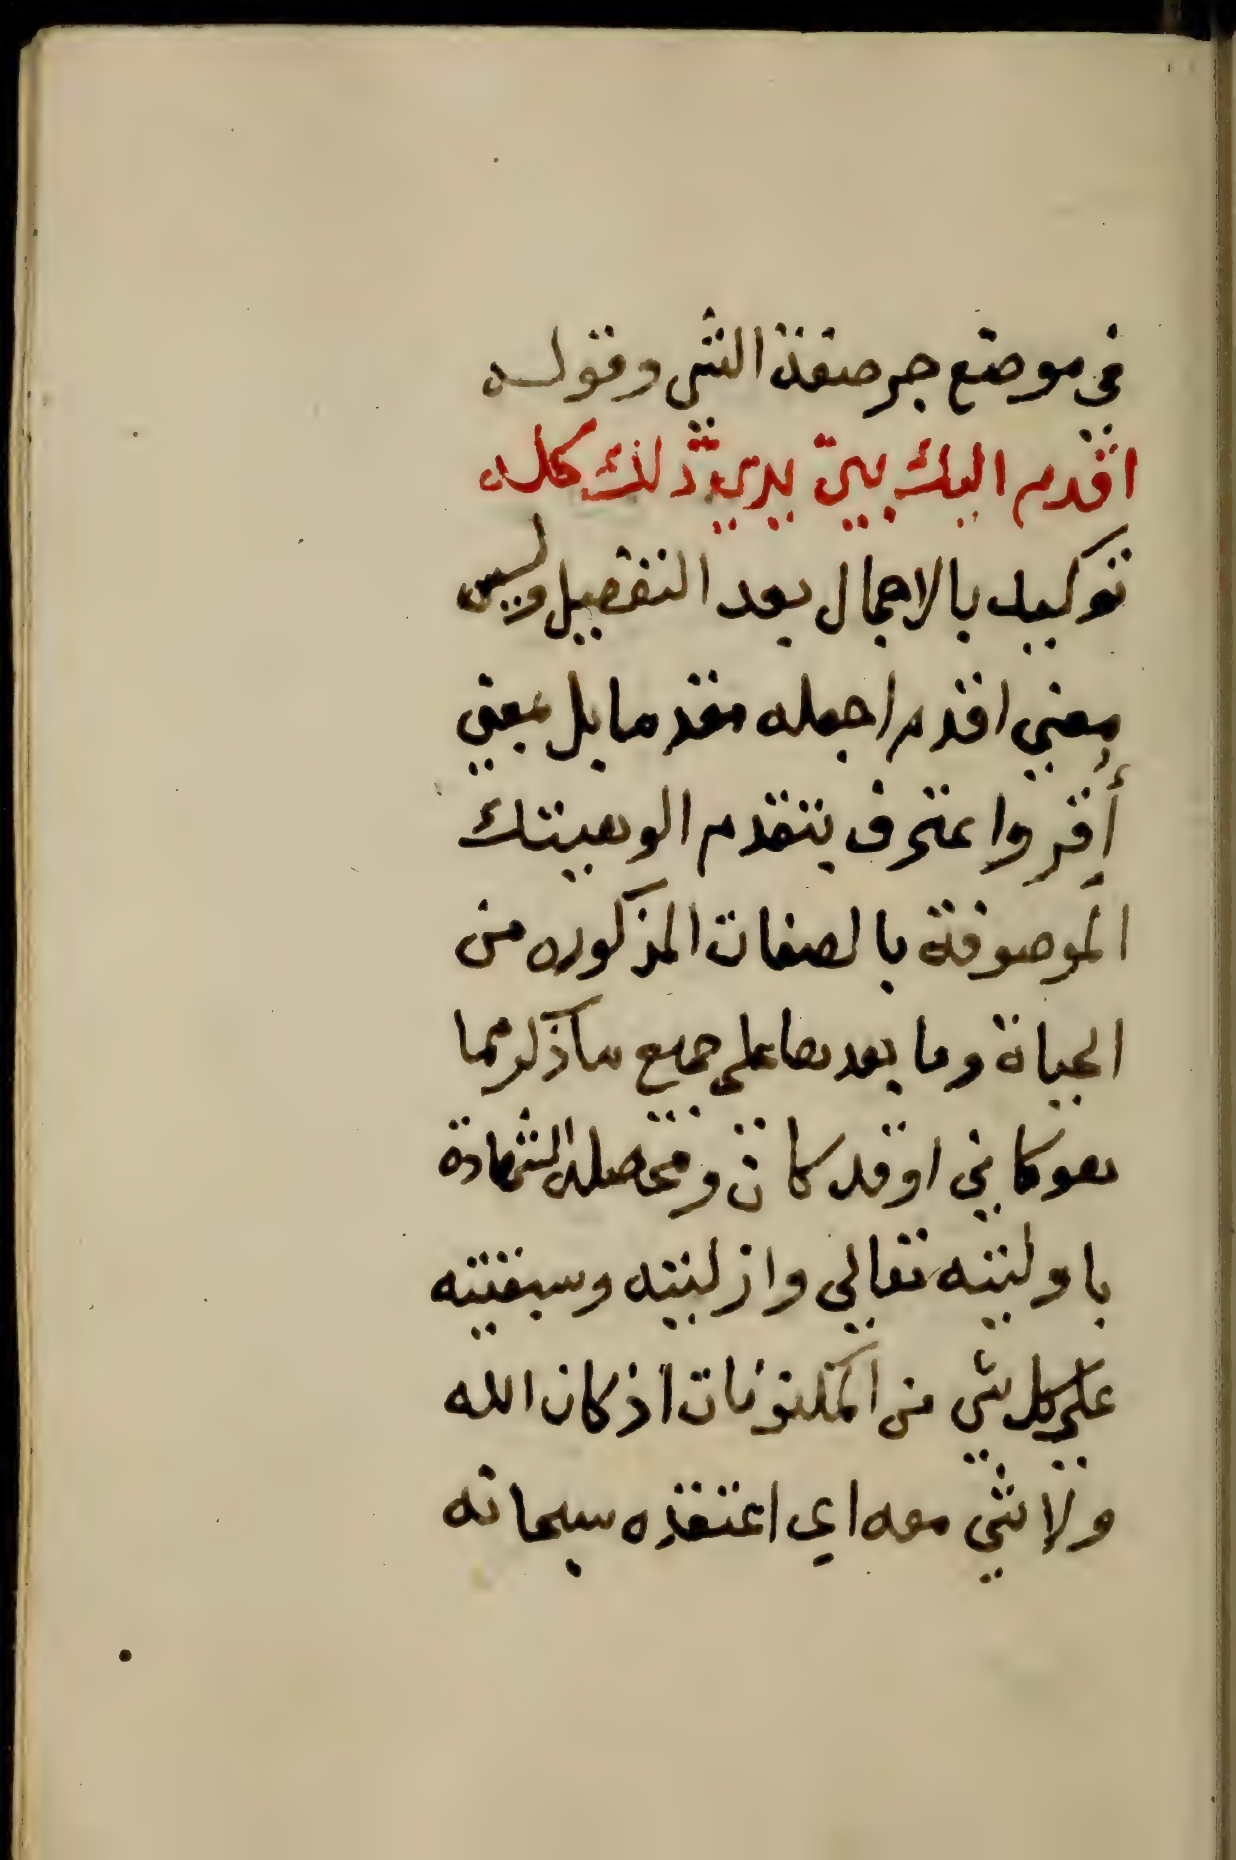 في موضع جر صفة الشي وقوله
اقدم اليك بين يدي ذلك كله
توكيد بالاجمال بعد التفصيل وليس
معني اقدم اجعله مقدما بل بمعني
أُقِر واعترف بتقدم الوهيتك
الموصوفة بالصفات المذكوره من
الحياة وما بعدها علي جميع ما ذكر مما
هو كاين او قد كان ومحصله الشهادة
باوليته تعالي وازليته وسبقيته
علي كل شي من المكونات اذ كان الله
ولا شي معه اي اعتقده سبحانه